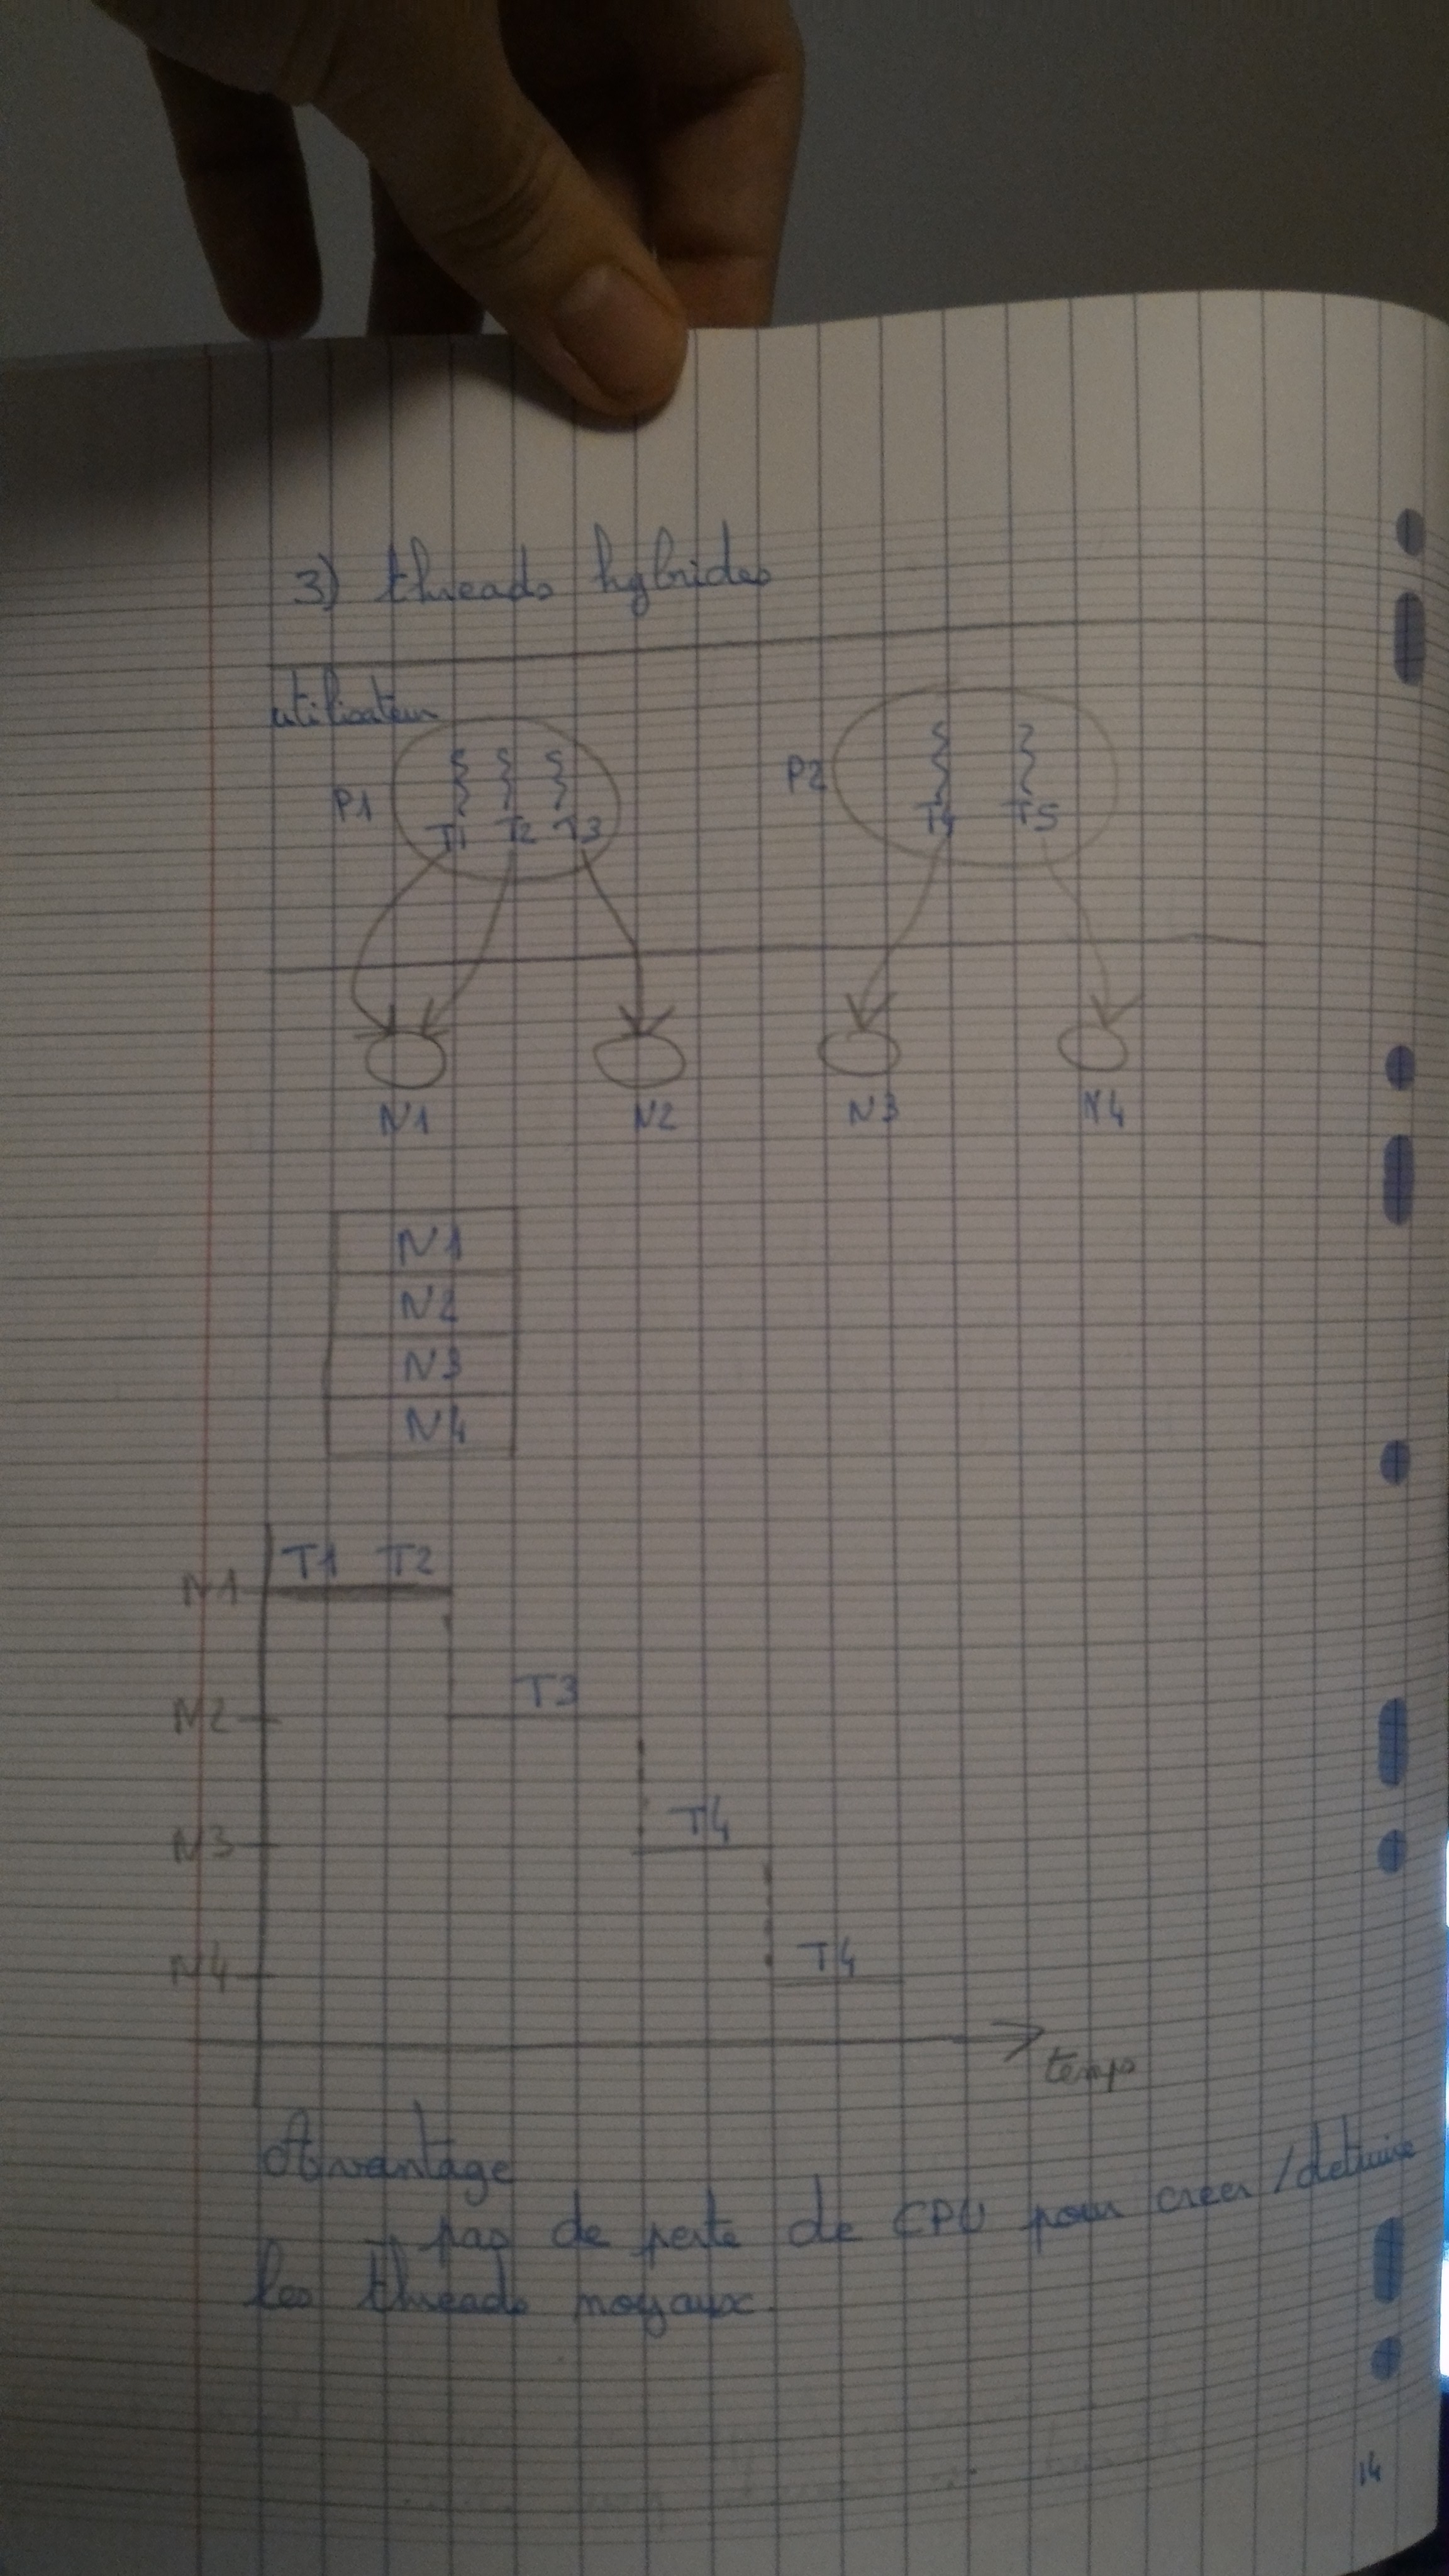 3) threads hybrides
utilisateur
P1
T1 T2 T3
P2
T4 T5
N1 N2 N3 N4
N1
N2
N3
N4
N1 T1 T2
N2 T3
N3 T4
N4 T4
temps
Avantage
- pas de perte de CPU pour creer / detruire
les threads noyaux.
14